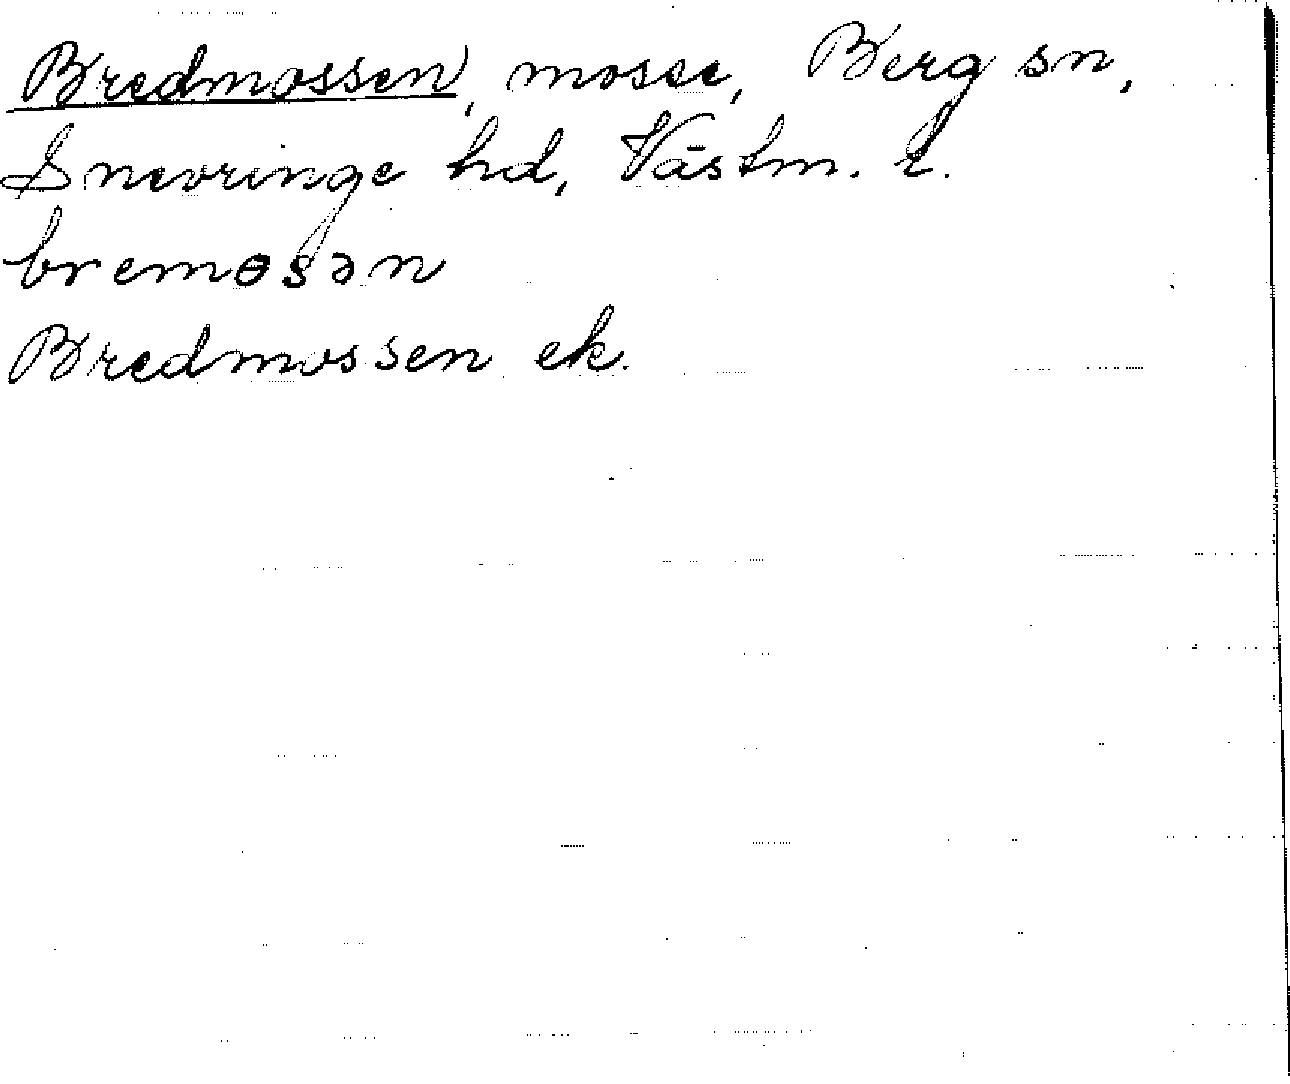 Bredmossen, mosse, Berg sn,
Snevringe hd, Västm. l.
bremɵsən
Bredmossen ek.